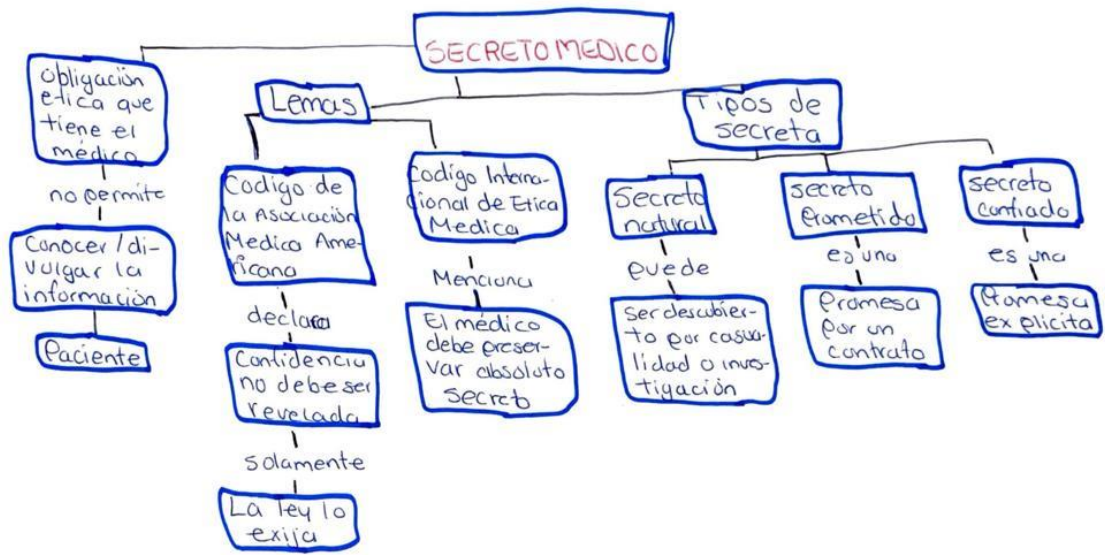 SECRETO MEDICO
Obligación
etica que
tiene el
médico
no permite
Conocer / di-
vulgar la
información
Paciente
Lemas
Codigo de
la Asociación
Medica Ame-
ricana
declara
Confidencia
no debe ser
revelada
solamente
La ley lo
exija
Codigo Interna-
cional de Etica
Medica
Menciona
El médico
debe preser-
var absoluto
secreto
Tipos de
secreta
Secreto
natural
puede
Ser descubier-
to por casua-
lidad o inves-
tigación
secreto
Prometido
es una
Promesa
por un
contrato
secreto
confiado
es una
Promesa
explicita